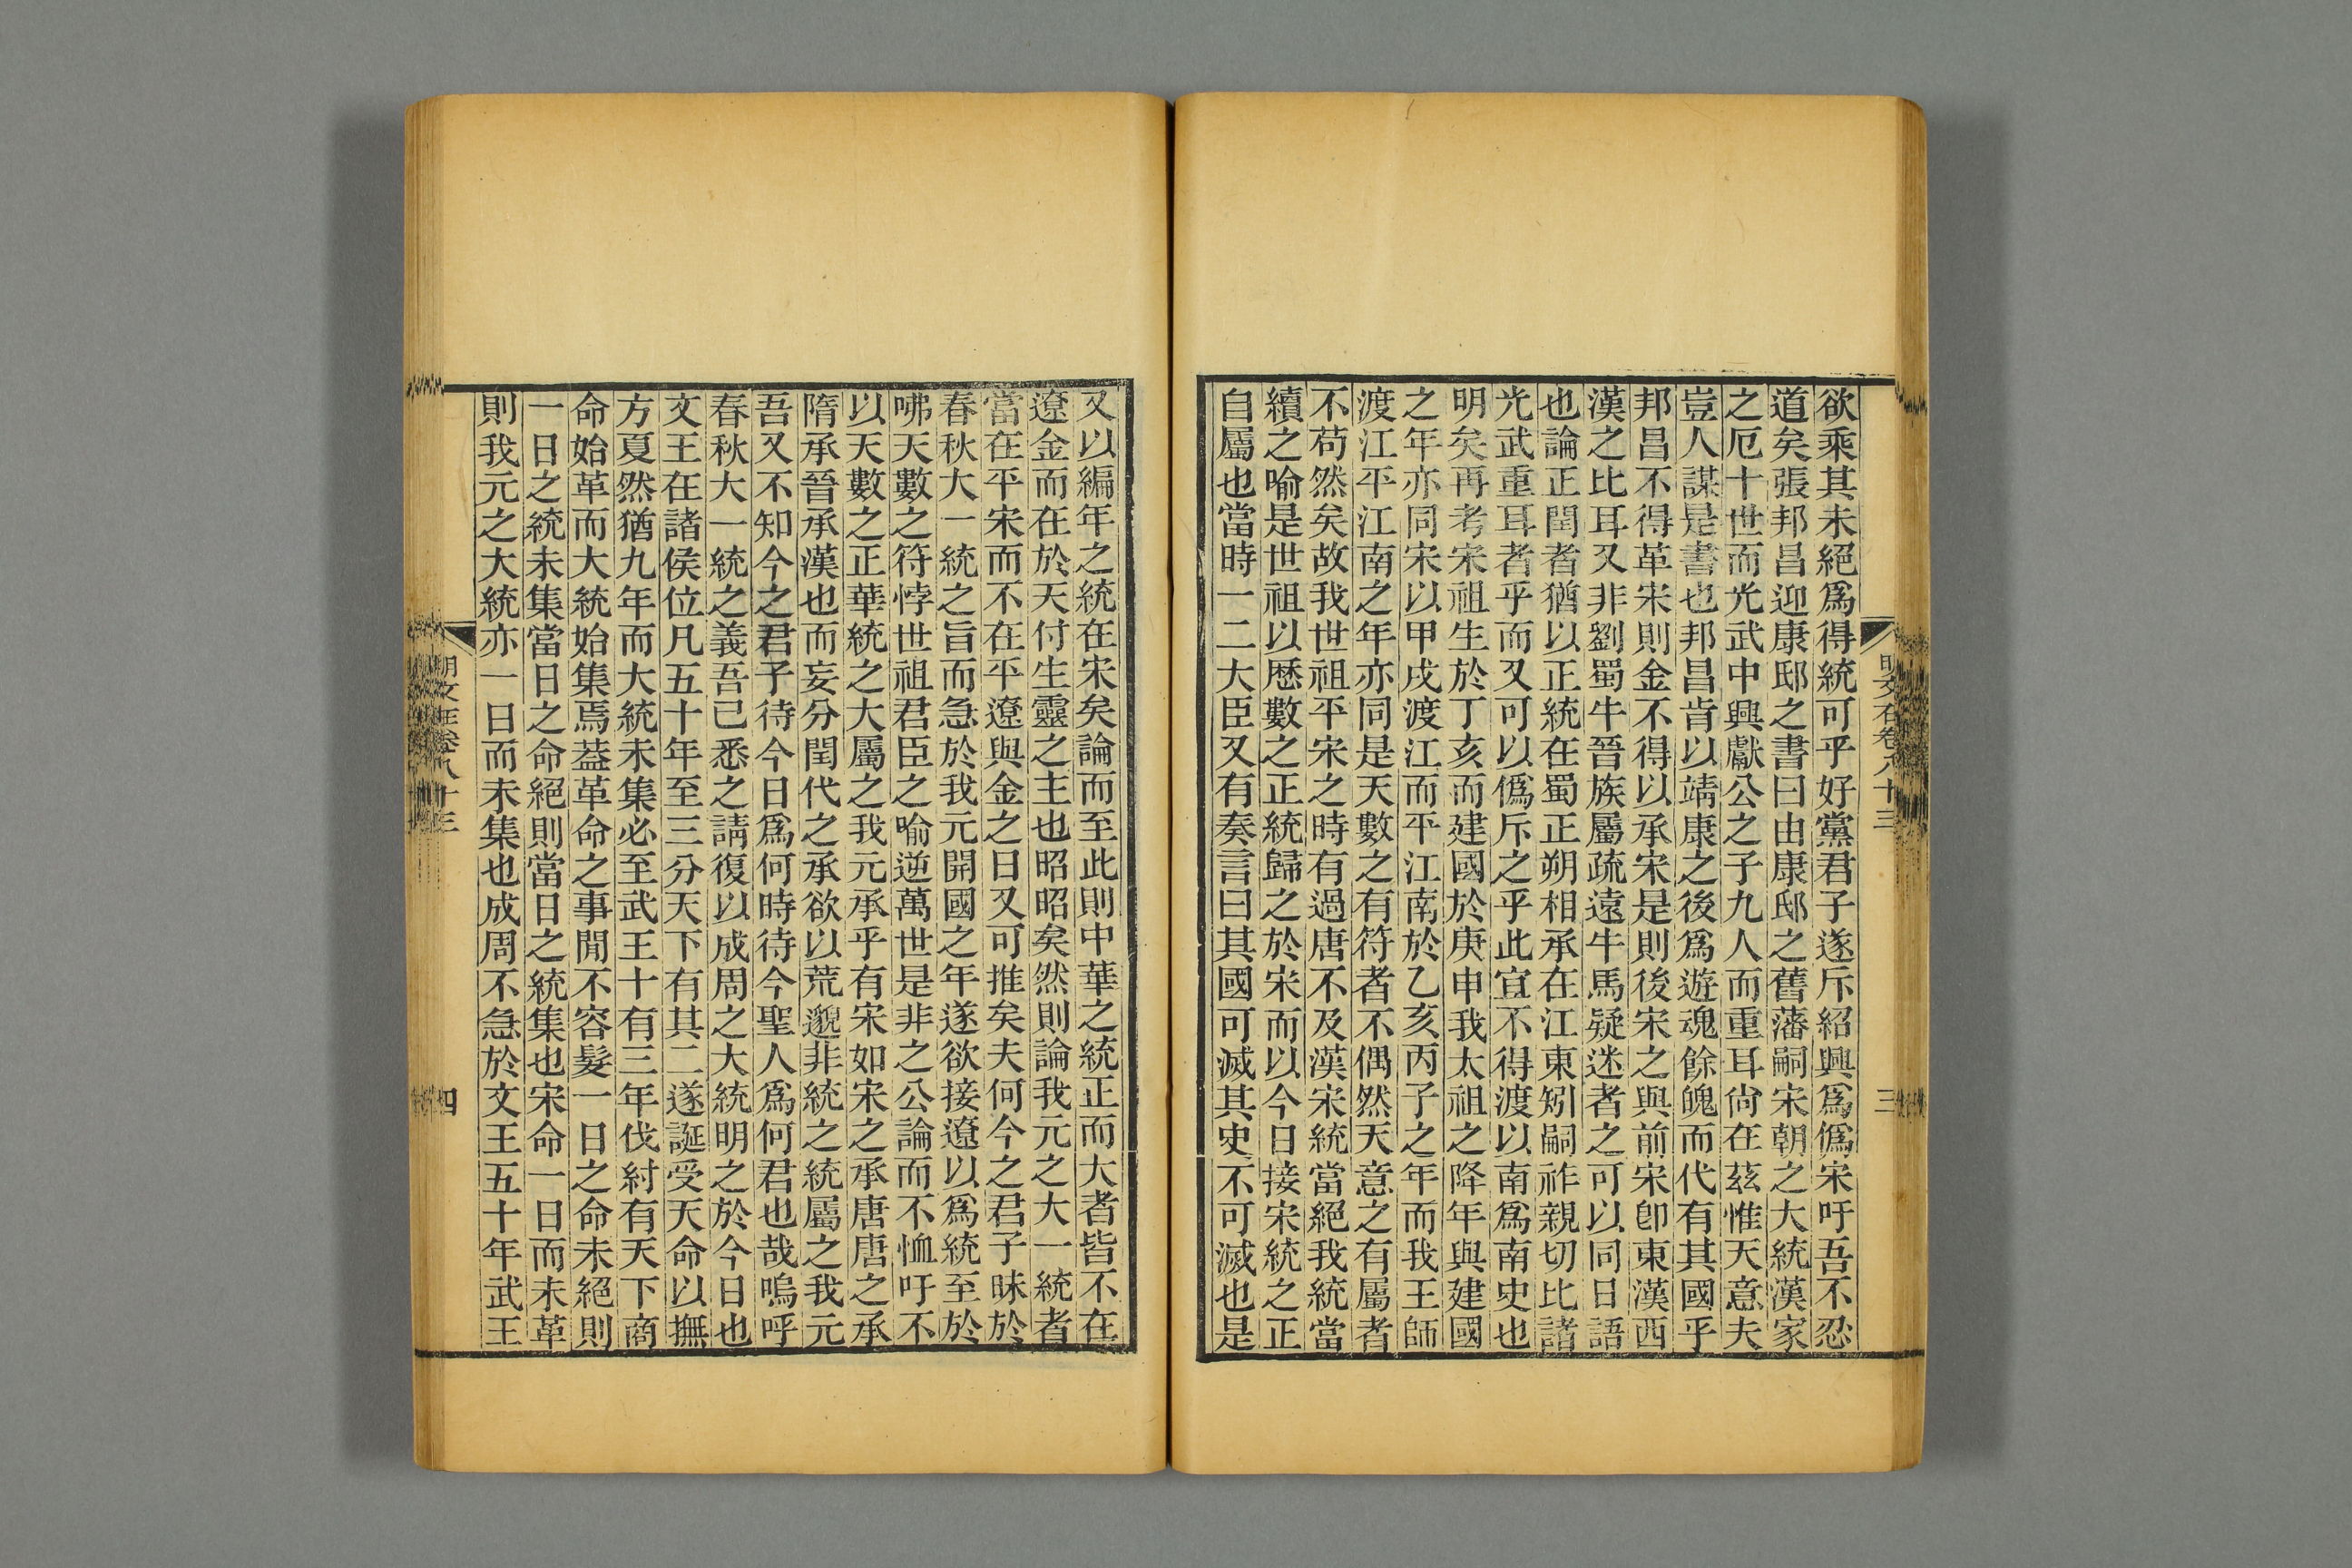 欲乘其未絕爲得統可乎好黨君子遂斥紹興爲僞宋吁吾不忍
道矣張邦昌迎康邸之書曰由康邸之舊藩嗣宋朝之大統漢家
之厄十世而光武中興獻公之子九人而重耳尙在茲惟天意夫
豈人謀是書也邦昌肯以靖康之後爲遊魂餘魄而代有其國乎
邦昌不得革宋則金不得以承宋是則後宋之與前宋卽東漢西
漢之比耳又非劉蜀牛晉族屬疏遠牛馬疑迷者之可以同日語
也論正閏者猶以正統在蜀正朔相承在江東矧嗣祚親切比諸
光武重耳者乎而又可以僞斥之乎此宜不得渡以南爲南史也
明矣再考宋祖生於丁亥而建國於庚申我太祖之降年與建國
之年亦同宋以甲戌渡江而平江南於乙亥丙子之年而我王師
渡江平江南之年亦同是天數之有符者不偶然天意之有屬者
不苟然矣故我世祖平宋之時有過唐不及漢宋統當絕我統當
續之喻是世祖以歷數之正統歸之於宋而以今日接宋統之正
自屬也當時一二大臣又有奏言曰其國可滅其史不可滅也是
明文在卷八十三
三
又以編年之統在宋矣論而至此則中華之統正而大者皆不在
遼金而在於天付生靈之主也昭昭矣然則論我元之大一統者
當在平宋而不在平遼與金之日又可推矣夫何今之君子昧於
春秋大一統之旨而急於我元開國之年遂欲接遼以爲統至於
咈天數之符悖世祖君臣之喻逆萬世是非之公論而不恤吁不
以天數之正華統之大屬之我元承乎有宋如宋之承唐唐之承
隋承晉承漢也而妄分閏代之承欲以荒邈非統之統屬之我元
吾又不知今之君子待今日爲何時待今聖人爲何君也哉嗚呼
春秋大一統之義吾已悉之請復以成周之大統明之於今日也
文王在諸侯位凡五十年至三分天下有其二遂誕受天命以撫
方夏然猶九年而大統未集必至武王十有三年伐紂有天下商
命始革而大統始集焉蓋革命之事閒不容髮一日之命未絕則
一日之統未集當日之命絕則當日之統集也宋命一日而未革
則我元之大統亦一日而未集也成周不急於文王五十年武王
明文在卷八十三
四